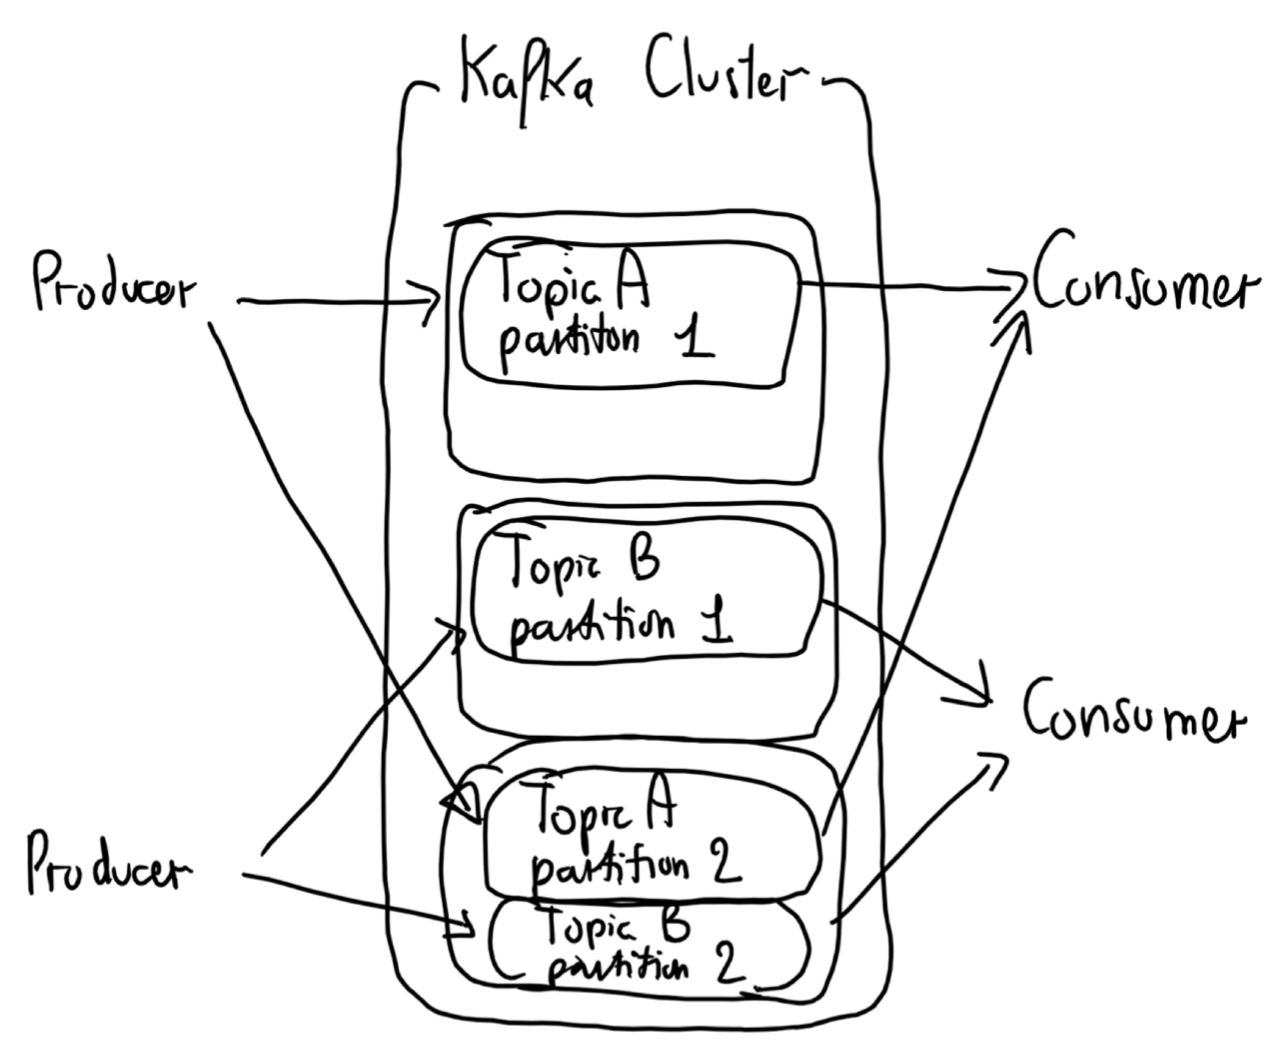 Kafka Cluster
Producer
Topic A
partiton 1
Consumer
Topic B
partition 1
Consumer
Producer
Topic A
partition 2
Topic B
partition 2